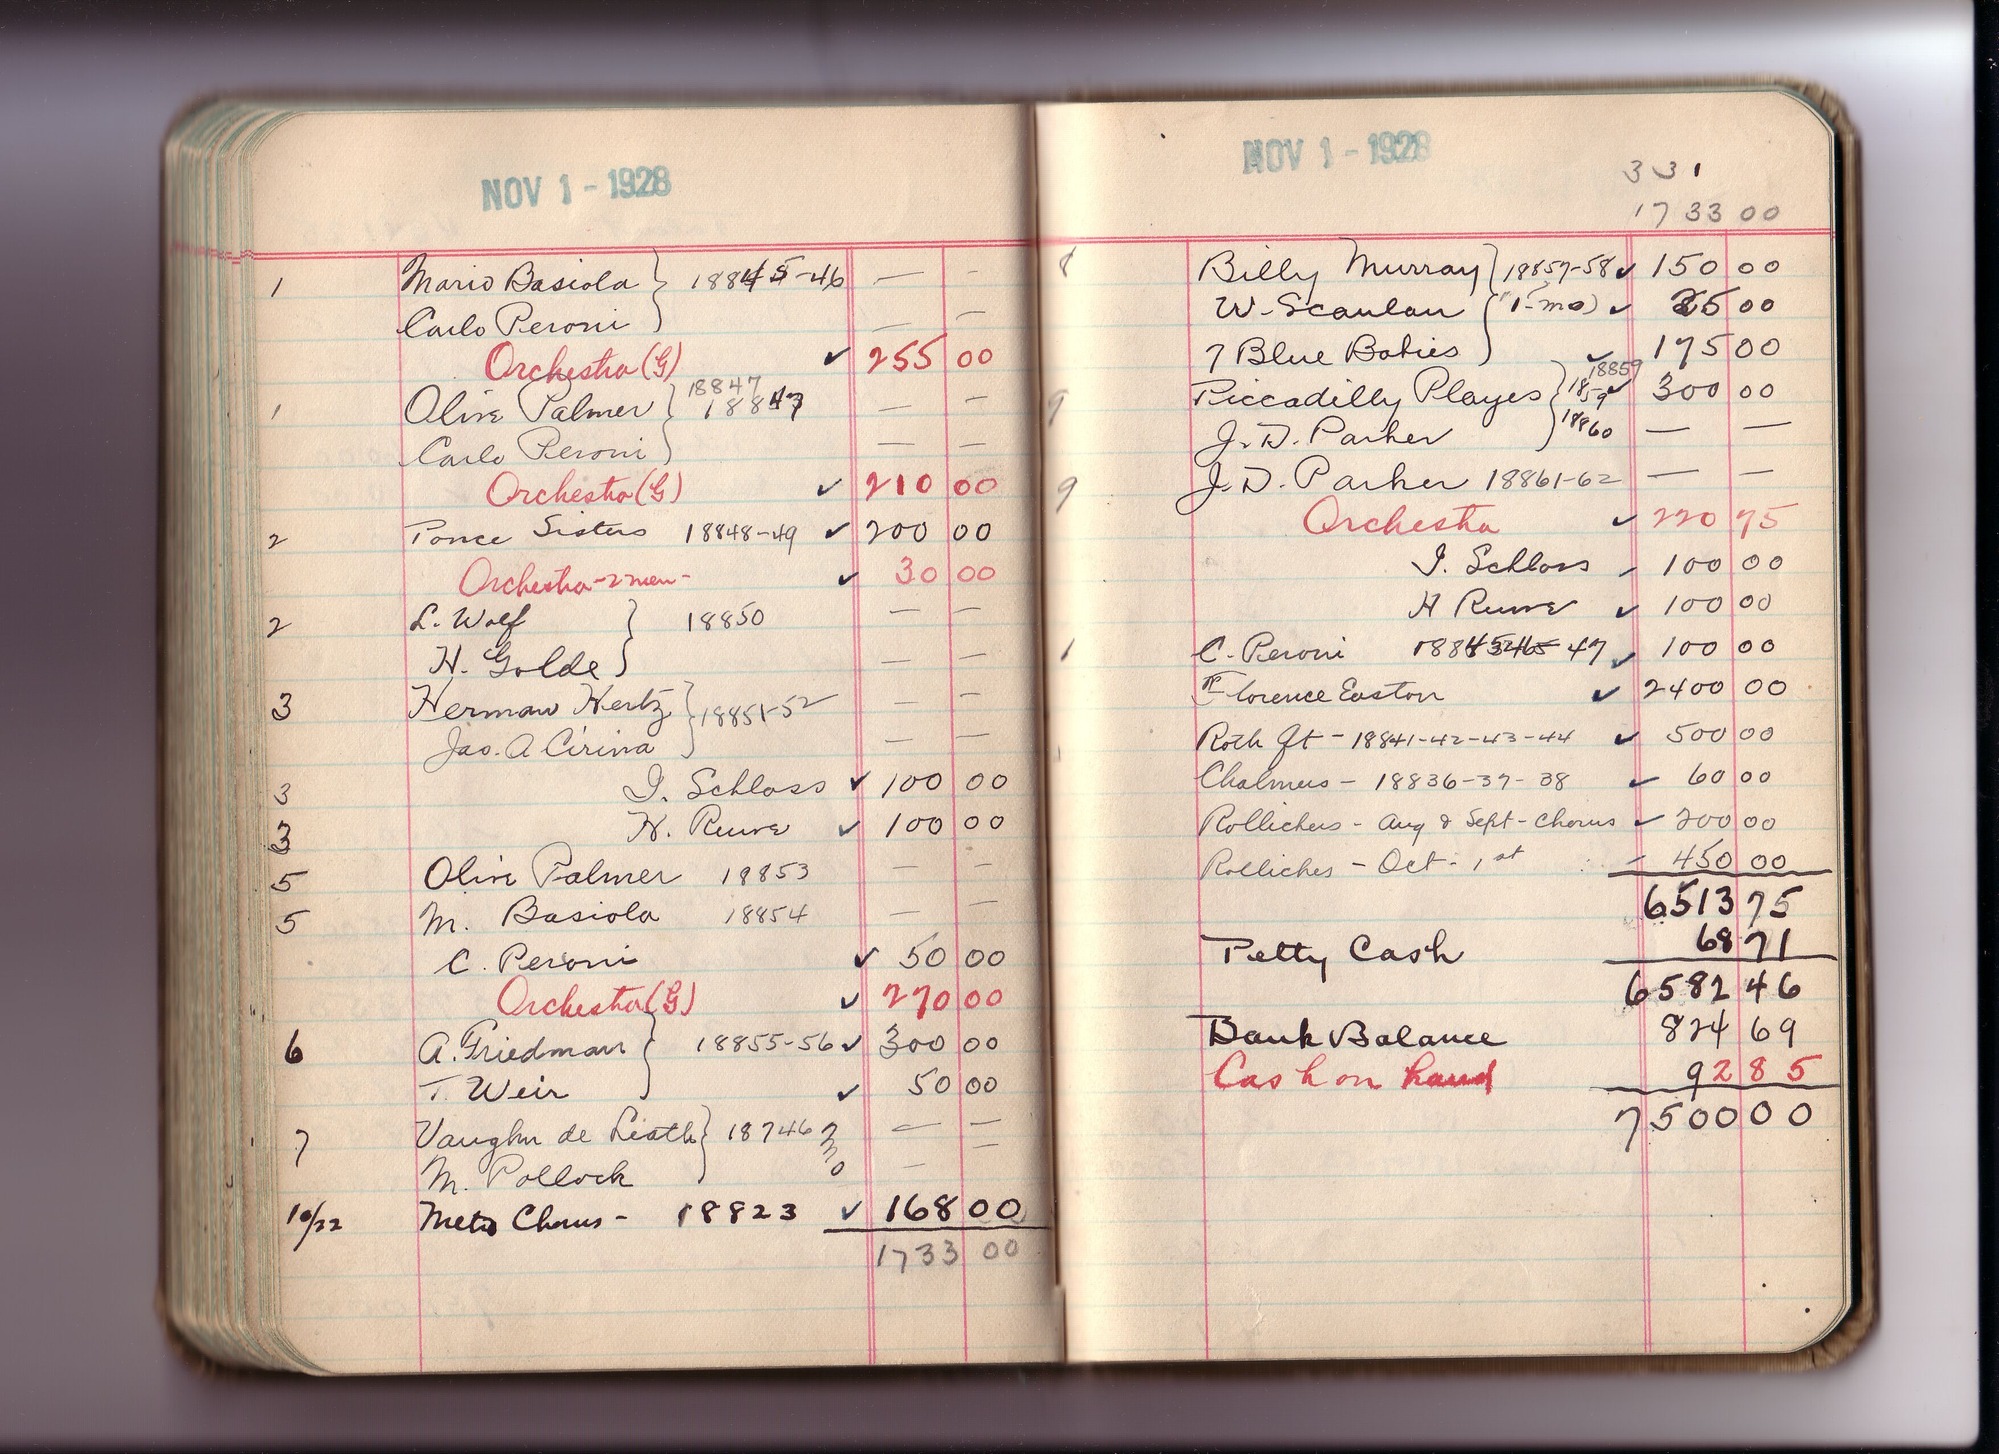 NOV 1 - 1928
1 Mario Basiola } 18845-46 — -
Carlo Peroni — —
Orchestra (G) ✓ 255 00
18847
1 Olive Palmer } 18847 — —
Carlo Peroni — —
Orchestra (G) ✓ 210 00
2 Ponce Sisters 18848-49 ✓ 200 00
Orchestra - 2 men - ✓ 30 00
2 L. Wolf } 18850 — —
H. Golde — —
3 Herman Hertz } 18851-52 — —
Jas. A Cirina — —
3 I. Schloss ✓ 100 00
3 H. Reuve ✓ 100 00
5 Olive Palmer 18853 — —
5 M. Basiola 18854 — —
C. Peroni ✓ 50 00
Orchestra (G) ✓ 270 00
6 A. Friedman } 18855-56 ✓ 300 00
T. Weir ✓ 50 00
7 Vaughn de Leath } 18746 — —
M. Pollock — —
10/22 Metro Chorus - 18823 ✓ 168 00
1733 00
NOV 1 - 1928
331
1733 00
8 Billy Murray } 18857-58 ✓ 150 00
W. Scanlan (1-mo) ✓ 25 00
7 Blue Babies ✓ 175 00
18859
9 Piccadilly Players } 1859 ✓ 300 00
J. D. Parker 18860 — —
9 J. D. Parker 18861-62 — —
Orchestra ✓ 220 75
I. Schloss ✓ 100 00
H Reuve ✓ 100 00
1 C. Peroni 47 ✓ 100 00
Florence Easton ✓ 2400 00
Roth Qt - 18841-42-43-44 ✓ 500 00
Chalmers - 18836-37-38 ✓ 60 00
Rollickers - Aug & Sept - Chorus ✓ 200 00
Rollickers - Oct. 1st - 450 00
6513 75
Petty Cash 68 71
6582 46
Bank Balance 824 69
Cash on hand 92 85
7500 00